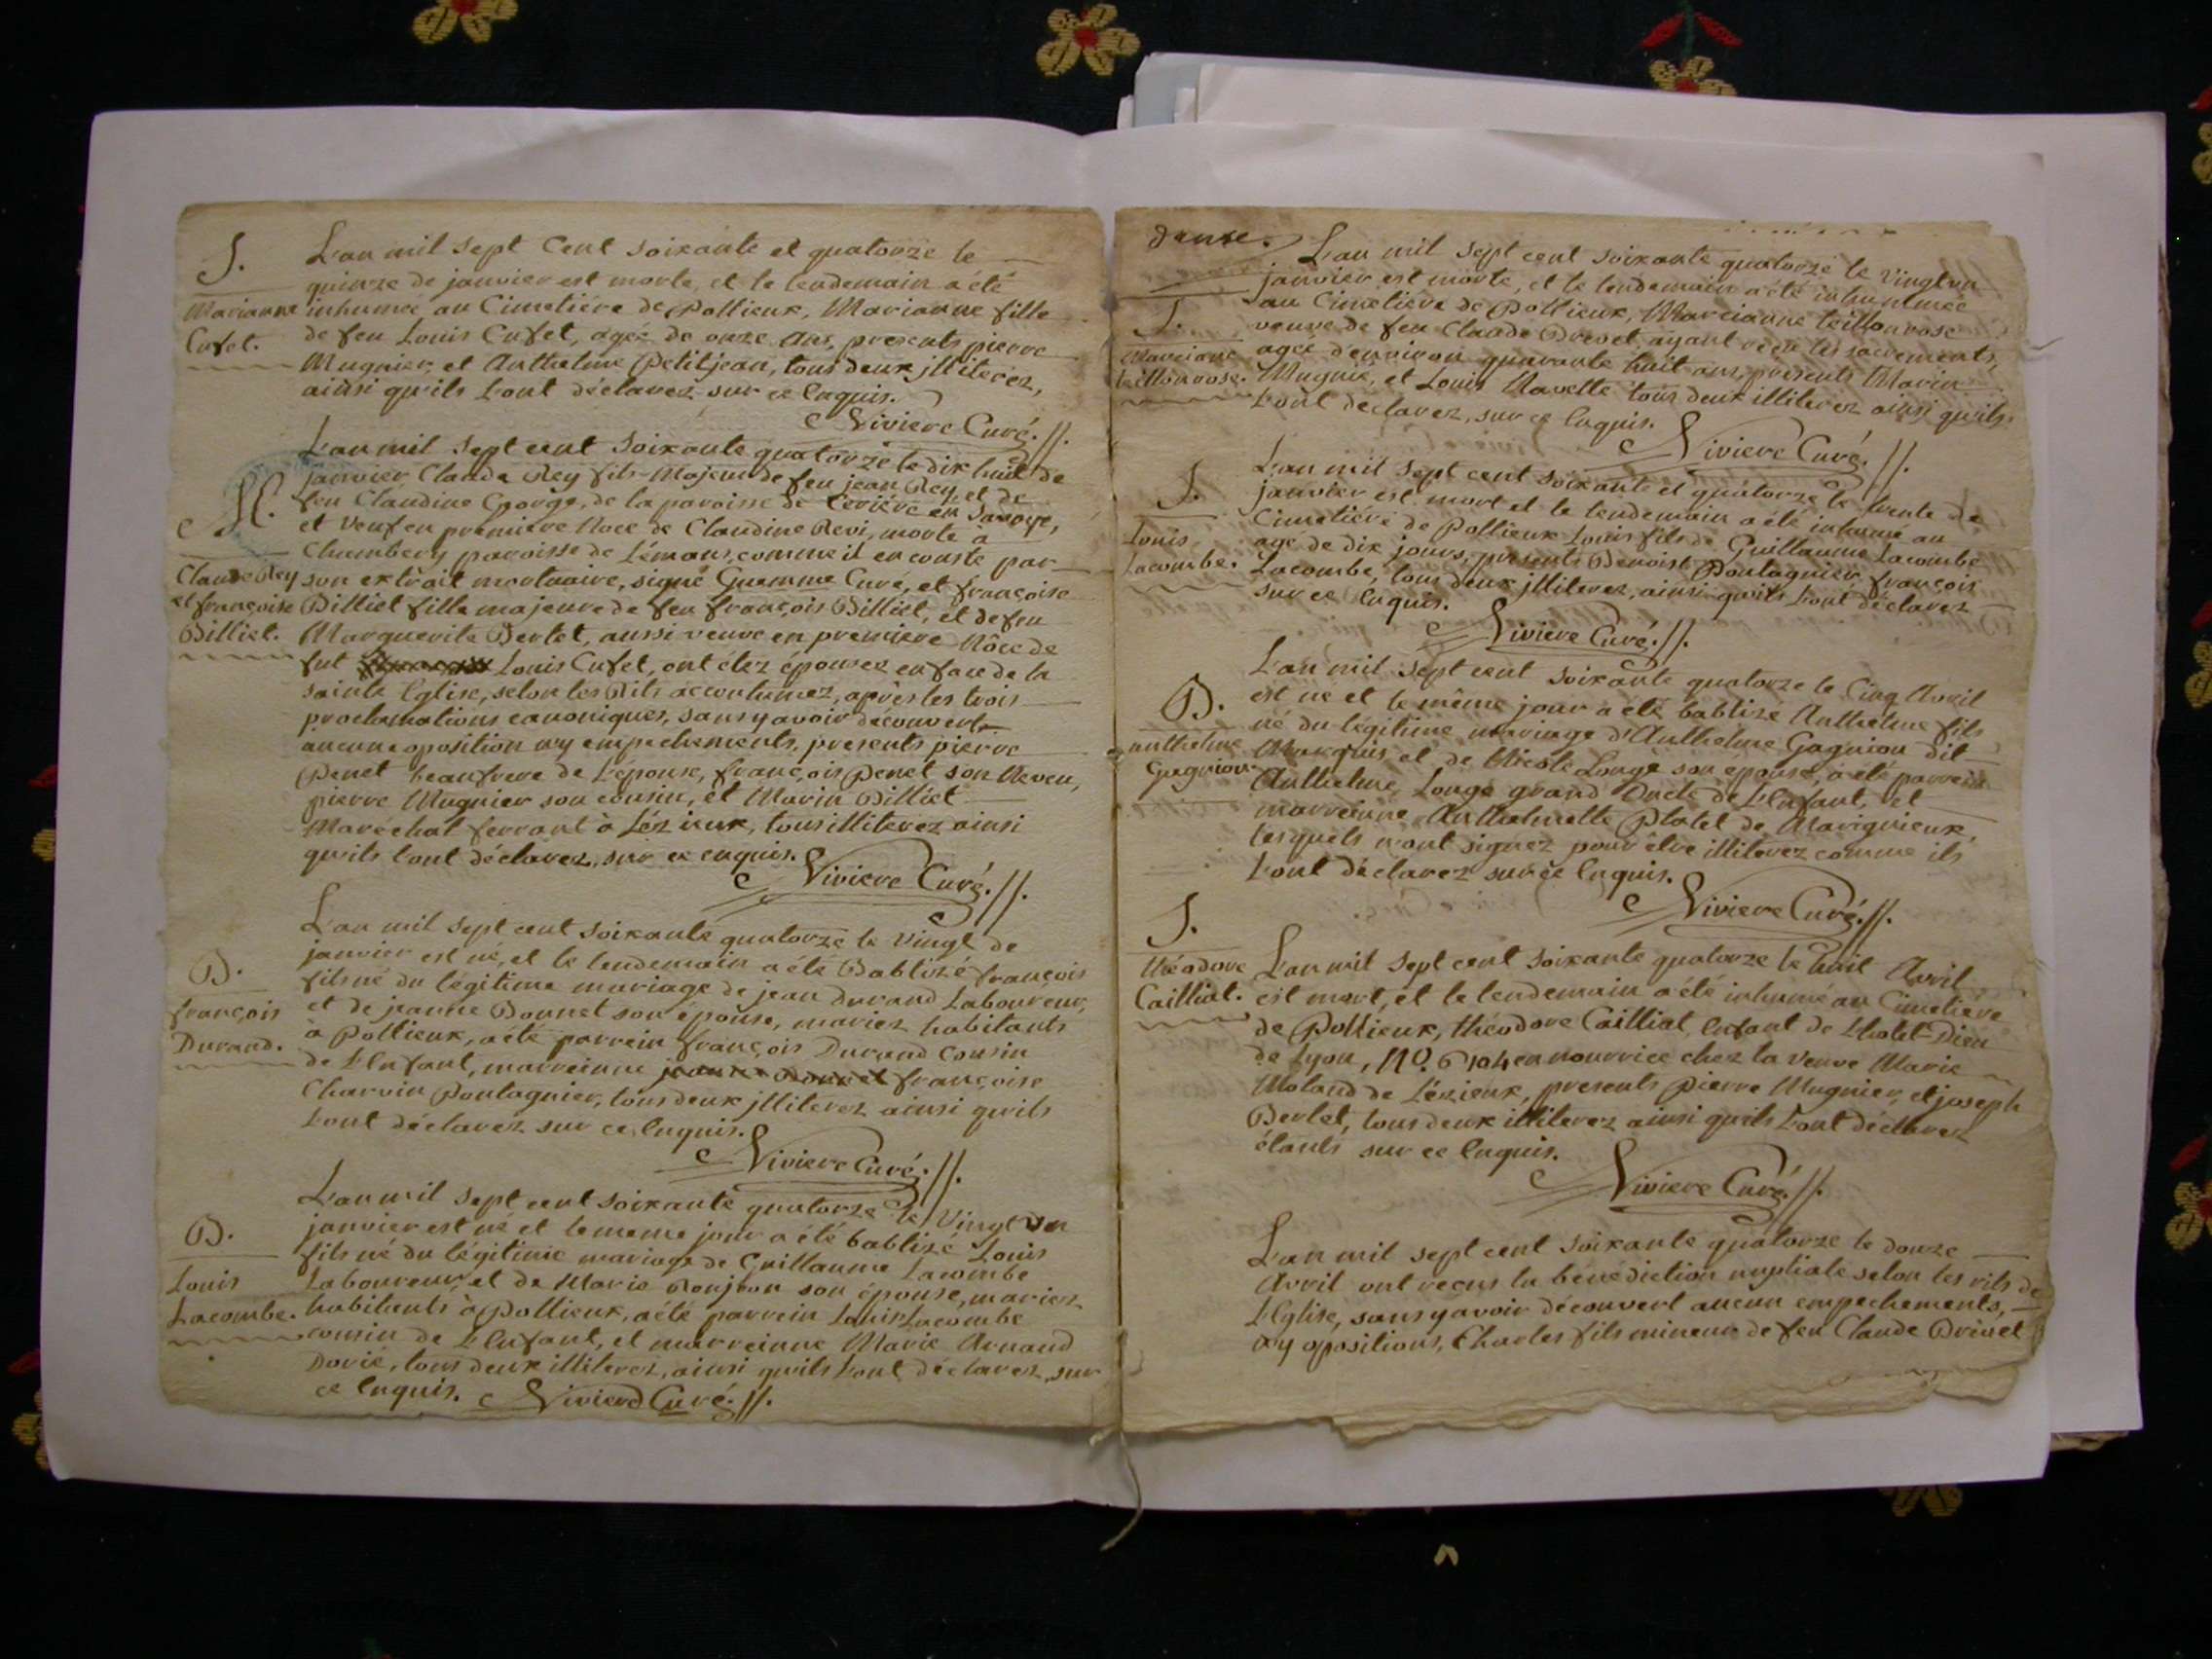 S.
Marianne
Cufet.
L'an mil sept Cent soixante et quatorze le
quinze de janvier est morte, et le lendemain a été
inhumée au Cimetiére de Pollieux, Marianne fille
de feu Louis Cufet, agée de onze ans, presents pierre
Mugnier, et Anthelme Petitjean, tous deux jlliterez,
ainsi qu'ils L'ont déclarez sur ce Enquis.
Viviere Curé.
M.
Claude Rey
et françoise
Billiet.
L'an mil sept cent soixante quatorze le dix huit de
janvier, Claude Rey fils Majeur de feu jean Rey, et de
feu Claudine George, de la paroisse de en Savoye,
et veuf en premiére Noce de Claudine Revi, morte a
Chambery paroisse de Lémans, comme il en conste par
son extrait mortuaire, signé Curé, et françoise
Billiet fille majeure de feu françois Billiet, et de feu
Marguerite Bertet, aussi veuve en premiere Nôce de
fut Louis Cufet, ont étez épousez en face de la
sainte Eglise, selon les Rits accoutumez, après les trois
proclamations canoniques, sans y avoir découvert
aucune oposition ny empechements, presents pierre
Penet beaufrere de L'épouse, françois Penet son Neveu,
pierre Mugnier son cousin, et Marin Billiet
Maréchal ferrant à Lézieux, tous illiterez ainsi
qu'ils l'ont déclarez, sur ce enquis.
Viviere Curé.
B.
françois
Durand.
L'an mil sept cent soixante quatorze le vingt de
janvier est né, et le lendemain a été Babtizé françois
fils né du légitime mariage de jean Durand Laboureur,
et de jeanne Bonnet son épouse, mariez habitants
à Pollieux, a été parrein françois Durand Cousin
de L'Enfant, marreinne jeanne Bonnet françoise
Charvin Pontagnier, tous deux jlliterez ainsi qu'ils
L'ont déclarez sur ce Enquis.
Viviere Curé.
B.
Louis
Lacombe.
L'an mil sept cent soixante quatorze le Vingt un
janvier est né et le meme jour a été babtizé Louis
fils né du légitime mariage de Guillaume Lacombe
Laboureur, et de Marie Bonjean son épouse, mariez
habitants à Pollieux, a été parrein Louis Lacombe
cousin de L'Enfant, et marreinne Marie Arnaud
Dorié, tous deux illiterez, ainsi qu'ils L'ont déclarez, sur
ce Enquis. Viviere Curé.
danse.
S.
Marciane
teillonrose.
L'an mil sept cent soixante quatorze le vingt un
janvier est morte, et le lendemain a été inhummée
au Cimetiére de Pollieux, Marcianne teillonrose
veuve de feu Claude Drevet, ayant reçu les sacrements,
agée d'environ quarante huit ans, presents Marin
Mugnié, et Louis Navette tous deux illiterez ainsi qu'ils
L'ont déclarez, sur ce Enquis.
Viviere Curé.
S.
Louis
Lacombe.
L'an mil sept cent soixante et quatorze le trente de
janvier est mort et le lendemain a été inhumé au
Cimetiére de Pollieux Louis fils de Guillaume Lacombe
agé de dix jours, presents Benoist Pontagnier, françois
Lacombe, tous deux jlliterez, ainsi qu'ils L'ont déclarez
sur ce Enquis.
Viviere Curé.
B.
anthelme
Gagniou.
L'an mil sept cent soixante quatorze le Cinq Avril
est né et le même jour a été babtizé Anthelme fils
né du légitime mariage d'Anthelme Gagniou dit
Marquis, et de Nicole Longe son épouse, a été parrein
Anthelme Longe grand Oncle de L'Enfant, et
marreinne Anthelmette Platel de Marignieux,
lesquels n'ont signez pour être illiterez comme ils
L'ont déclarez sur ce Enquis.
Viviere Curé.
S.
théodore
Cailliat.
L'an mil sept cent soixante quatorze le huit Avril
est mort, et le lendemain a été inhumé au Cimetiére
de Pollieux, théodore Cailliat, Enfant de L'hotel-Dieu
de Lyon, N.º 6104 en nourrice chez la veuve Marie
Moland de Lézieux, presents Pierre Mugnier, et joseph
Bertet, tous deux illiterez ainsi qu'ils L'ont déclarez
étants sur ce Enquis.
Viviere Curé.
L'an mil sept cent soixante quatorze le douze
Avril ont reçus la bénédiction nuptiale selon les rits de
L'Eglise, sans y avoir découvert aucun empechements,
ny opositions, Charles fils mineur de feu Claude Drevet